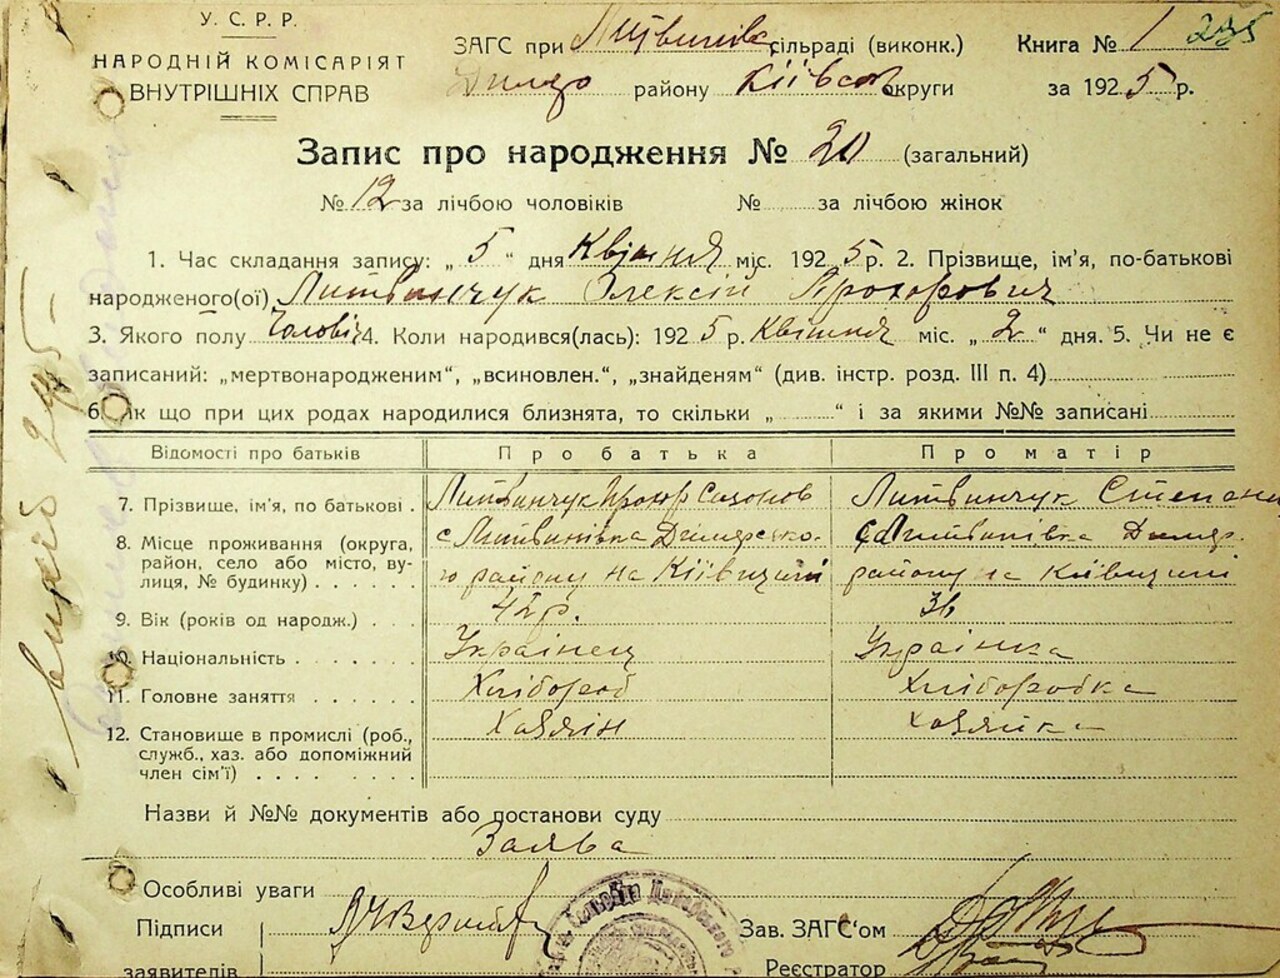 У. С. Р. Р.
НАРОДНІЙ КОМІСАРІЯТ
ВНУТРІШНІХ СПРАВ
ЗАГС при Литвинівс сільраді (виконк.) Книга № 1 235
району Київсь округи за 1925 р.
Запис про народження № 20 (загальний)
№ 12 за лічбою чоловіків № за лічбою жінок
1. Час складання запису: „5“ дня Квітня міс. 1925 р. 2. Прізвище, ім'я, по-батькові
народженого(ої) Литвинчук Олексій Прохорович
3. Якого полу Чоловіч 4. Коли народився(лась): 1925 р. Квітня міс. „2“ дня. 5. Чи не є
записаний: „мертвонародженим“, „всиновлен.“, „знайденям“ (див. інстр. розд. III п. 4)
6. Як що при цих родах народилися близнята, то скільки „ “ і за якими №№ записані
Відомості про батьків Про батька Про матір
7. Прізвище, ім'я, по батькові . Литвинчук Прохор Созонов Литвинчук Степани
8. Місце проживання (округа, с Литвинівка Димерсько- с Литвинівка Димер.
район, село або місто, ву-
лиця, № будинку) . . . . . го району на Київщині району на Київщині
9. Вік (років од народж.) . . . 42 р. 36
10. Національність . . . . . . . Українец Українка
11. Головне заняття . . . . . . Хлібороб Хліборобка
12. Становище в промислі (роб., Хазяїн хазяйка
служб., хаз. або допоміжний
член сім'ї) . . . . . . . .
Назви й №№ документів або постанови суду
Заява
Особливі уваги
Підписи
заявителів
Зав. ЗАГС'ом
Реєстратор